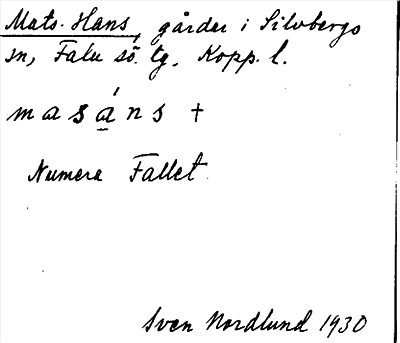 Mats-Hans gårdar i Silvbergs
sn, Falu sö. tg, Kopp. l.
masá̱ns †
Numera Fallet
Sven Nordlund 1930